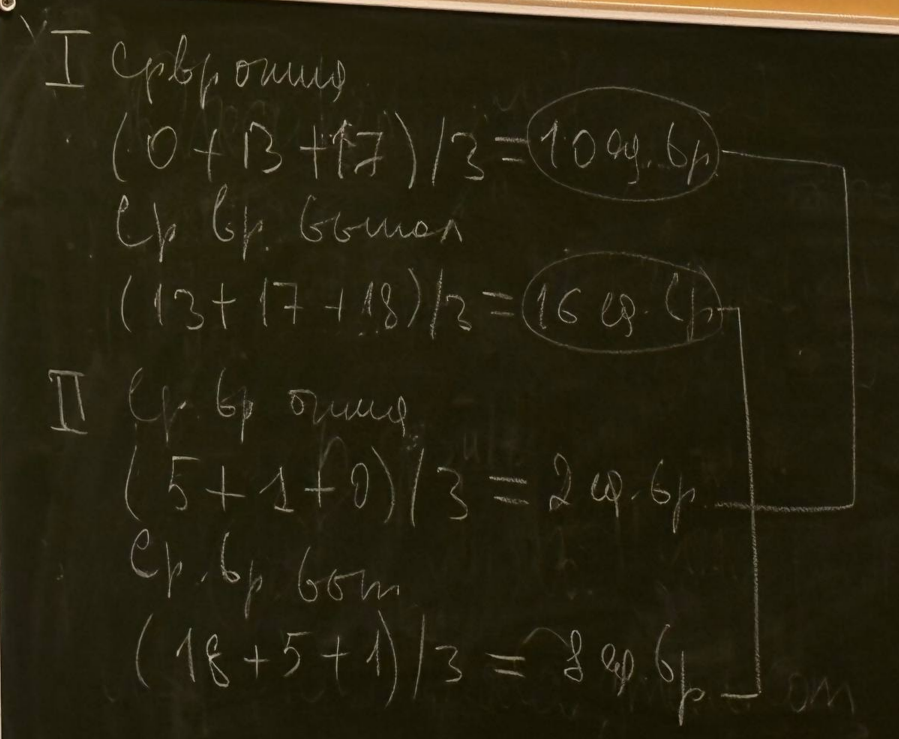 I Ср вр ожид
(0 + 13 + 17) / 3 = 10 ед. вр
Ср вр. выпол
(13 + 17 + 18) / 3 = 16 ед. вр
II Ср. вр ожид
(5 + 1 + 0) / 3 = 2 ед. вр.
Ср. вр. вып
(18 + 5 + 1) / 3 = 8 ед. вр